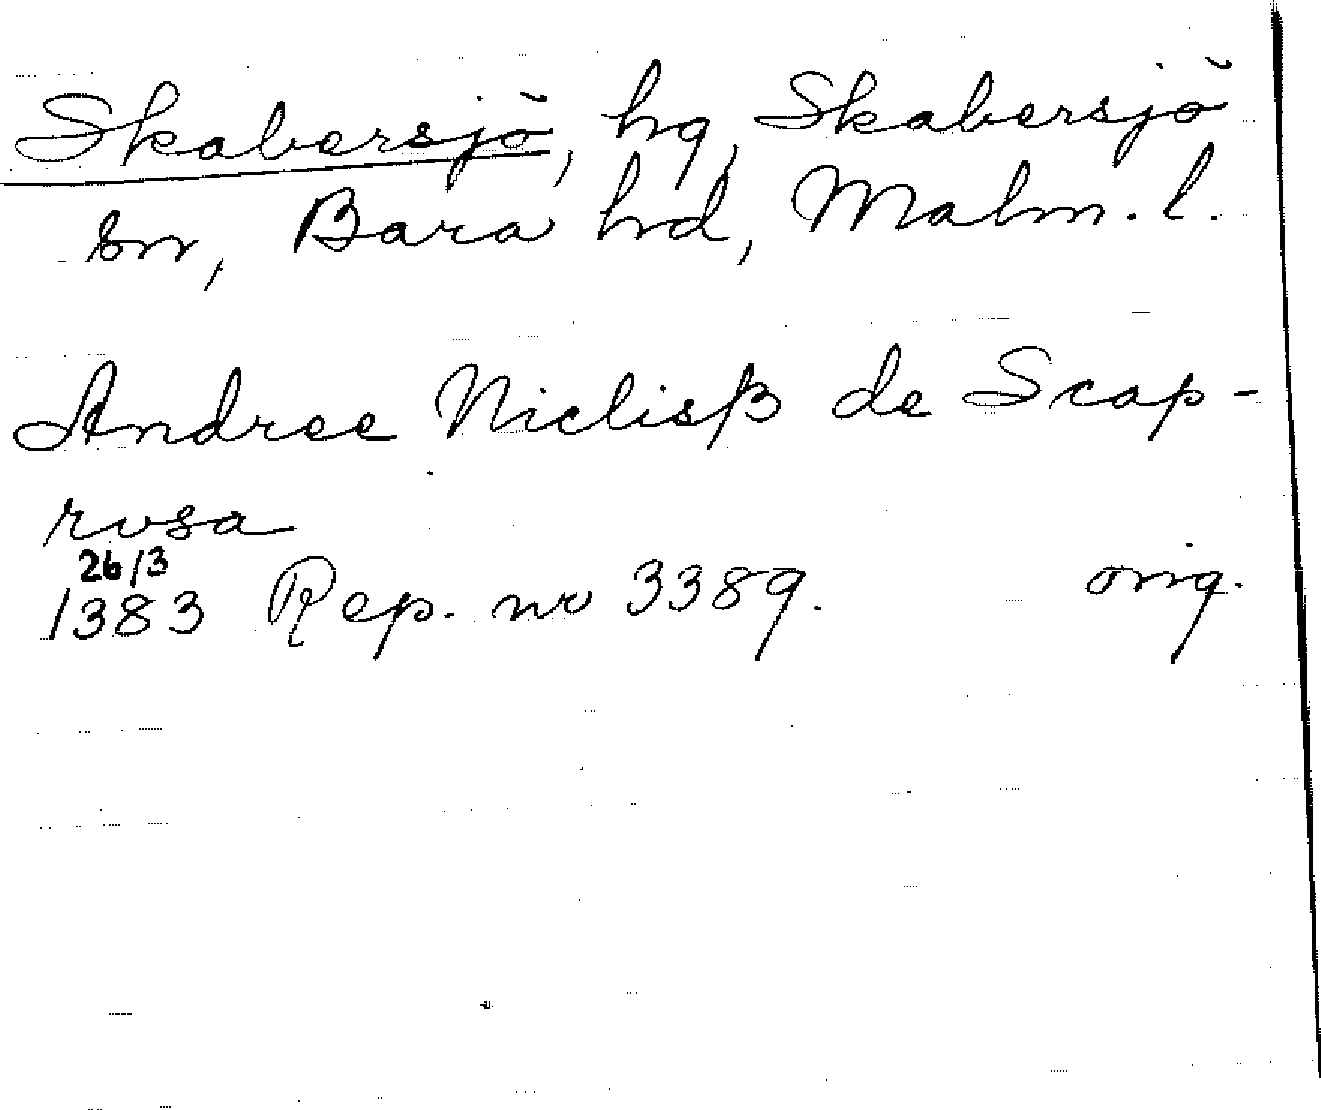 Skabersjö, hg, Skabersjö
sn, Bara hd, Malm. l.
Andree Niclisß de Scap-
rvsa
26/3
1383 Rep. nr 3389. orig.